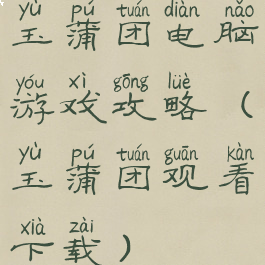 yù pú tuán diàn nǎo
玉蒲团电脑
yóu xì gōng lüè
游戏攻略（
yù pú tuán guān kàn
玉蒲团观看
xià zài
下载）